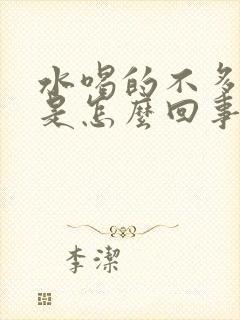 水喝的不多
是怎麼回事
李潔